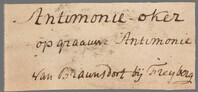 Antimonie-oker
op graauw Antimonie
van Braunsdorf bij Freyberg